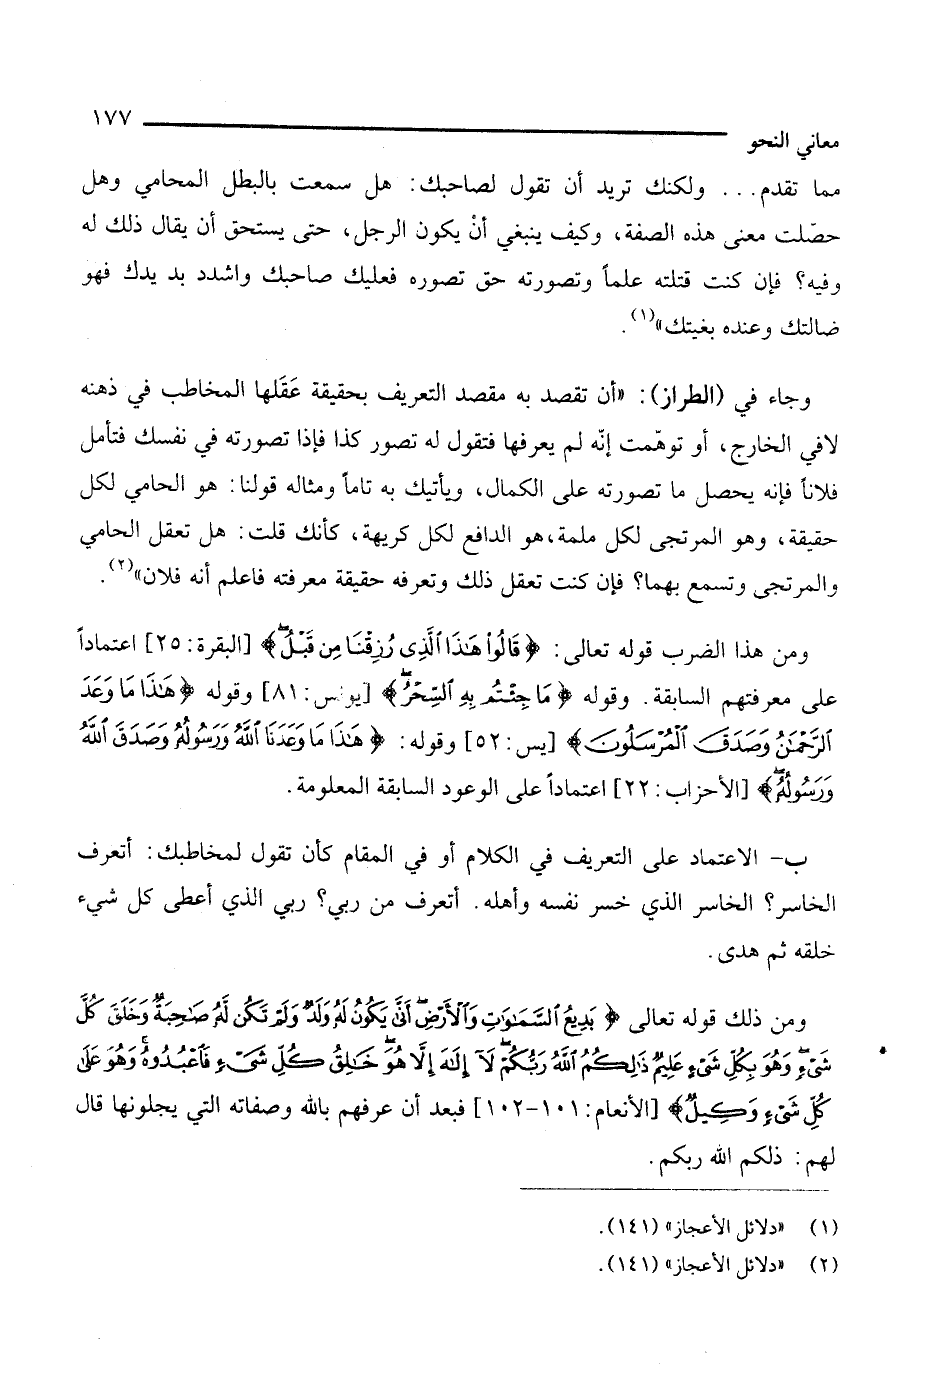 ١٧٧
معاني النحو
مما تقدم... ولكنك تريد أن تقول لصاحبك: هل سمعت بالبطل المحامي وهل
حصّلت معنى هذه الصفة، وكيف ينبغي أنْ يكون الرجل، حتى يستحق أن يقال ذلك له
وفيه؟ فإن كنت قتلته علماً وتصورته حق تصوره فعليك صاحبك واشدد بد يدك فهو
ضالتك وعنده بغيتك»(١).
وجاء في (الطراز): «أن تقصد به مقصد التعريف بحقيقة عَقَلها المخاطب في ذهنه
لافي الخارج، أو توهّمت إنّه لم يعرفها فتقول له تصور كذا فإذا تصورته في نفسك فتأمل
فلاناً فإنه يحصل ما تصورته على الكمال، ويأتيك به تاماً ومثاله قولنا: هو الحامي لكل
حقيقة، وهو المرتجى لكل ملمة،هو الدافع لكل كريهة، كأنك قلت: هل تعقل الحامي
والمرتجى وتسمع بهما؟ فإن كنت تعقل ذلك وتعرفه حقيقة معرفته فاعلم أنه فلان»(٢).
ومن هذا الضرب قوله تعالى: ﴿قَالُوا۟ هَٰذَا ٱلَّذِى رُزِقْنَا مِن قَبْلُ ۖ﴾ [البقرة: ٢٥] اعتماداً
على معرفتهم السابقة. وقوله ﴿مَا جِئْتُم بِهِ ٱلسِّحْرُ ۖ﴾ [يونس: ٨١] وقوله ﴿هَٰذَا مَا وَعَدَ
ٱلرَّحْمَٰنُ وَصَدَقَ ٱلْمُرْسَلُونَ﴾ [يس: ٥٢] وقوله: ﴿هَٰذَا مَا وَعَدَنَا ٱللَّهُ وَرَسُولُهُۥ وَصَدَقَ ٱللَّهُ
وَرَسُولُهُۥ ۚ﴾ [الأحزاب: ٢٢] اعتماداً على الوعود السابقة المعلومة.
ب- الاعتماد على التعريف في الكلام أو في المقام كأن تقول لمخاطبك: أتعرف
الخاسر؟ الخاسر الذي خسر نفسه وأهله. أتعرف من ربي؟ ربي الذي أعطى كل شيء
خلقه ثم هدى.
ومن ذلك قوله تعالى ﴿بَدِيعُ ٱلسَّمَٰوَٰتِ وَٱلْأَرْضِ ۖ أَنَّىٰ يَكُونُ لَهُۥ وَلَدٌ وَلَمْ تَكُن لَّهُۥ صَٰحِبَةٌ ۖ وَخَلَقَ كُلَّ
شَىْءٍ ۖ وَهُوَ بِكُلِّ شَىْءٍ عَلِيمٌ ذَٰلِكُمُ ٱللَّهُ رَبُّكُمْ ۖ لَآ إِلَٰهَ إِلَّا هُوَ ۖ خَٰلِقُ كُلِّ شَىْءٍ فَٱعْبُدُوهُ ۚ وَهُوَ عَلَىٰ
كُلِّ شَىْءٍ وَكِيلٌ﴾ [الأنعام: ١٠١-١٠٢] فبعد أن عرفهم بالله وصفاته التي يجلونها قال
لهم: ذلكم الله ربكم.
(١) «دلائل الأعجاز» (١٤١).
(٢) «دلائل الأعجاز» (١٤١).